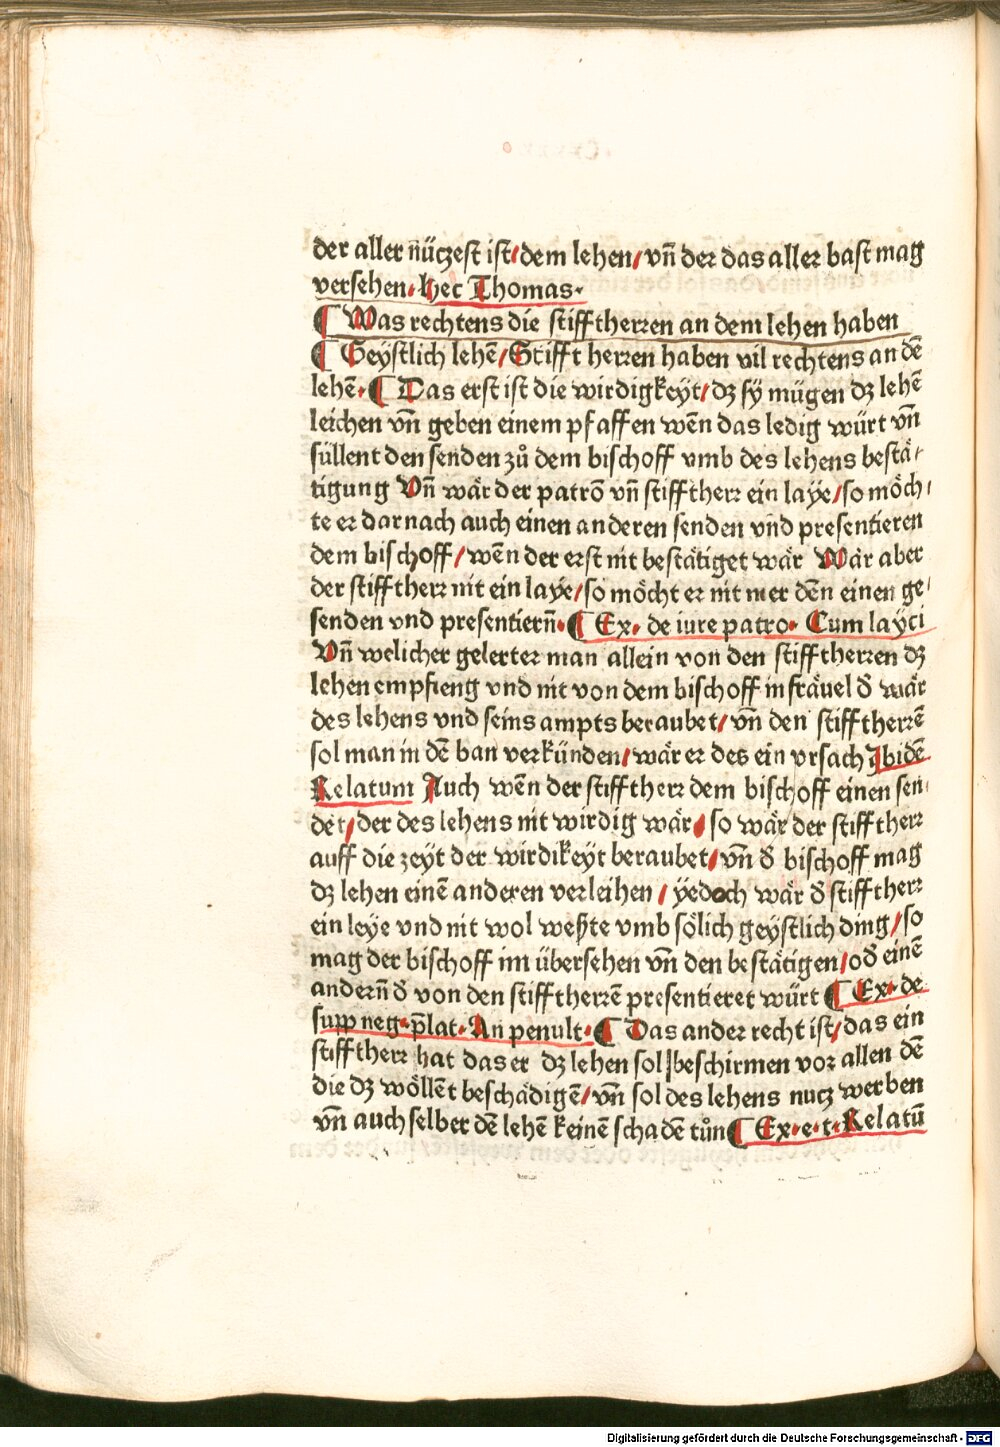 der aller nüczest ist/dem lehen/vn̄ der das aller bast mag
versehen. hec Thomas.
¶ Was rechtens die stifftherren an dem lehen haben
¶ Geystlich lehē/Stifft herren haben vil rechtens an dē
lehē. ¶ Das erst ist die wirdigkeyt/dꝫ sÿ mügen dꝫ lehē
leichen vn̄ geben einem pfaffen wēn das ledig würt vn̄
süllent den senden zů dem bischoff vmb des lehens bestä/
tigung Vn̄ wär der patrō vn̄ stifftherr ein laÿe/so möch/
te er darnach auch einen anderen senden vnd presentieren
dem bischoff/wēn der erst nit bestätiget wär Wär aber
der stifftherr nit ein laye/so möcht er nit mer dēn einen ge/
senden vnd presentiern̄. ¶ Ex. de iure patro. Cum laÿci
Vn̄ welicher gelerter man allein von den stifftherren dꝫ
lehen empfieng vnd nit von dem bischoff in fräuel d̄ wär
des lehens vnd seins ampts beraubet/vn̄ den stifftherrē
sol man in dē ban verkünden/wär er des ein vrsach Ibidē
Relatum Auch wēn der stifftherr dem bischoff einen sen/
det/der des lehens nit wirdig wär/so wär der stifftherr
auff die zeyt der wirdikeyt beraubet/vn̄ d̄ bischoff mag
dꝫ lehen einē anderen verleihen/ÿedoch wär d̄ stifftherr
ein leye vnd nit wol weßte vmb sölich geÿstlich ding/so
mag der bischoff im übersehen vn̄ den bestätigen/od̄ einē
andern̄ d̄ von den stifftherrē presentieret würt ¶ Ex. de
supp neg. p̄lat. An penult. ¶ Das ander recht ist/das ein
stifftherr hat das er dꝫ lehen sol beschirmen vor allen dē
die dꝫ wöllēt beschädigē/vn̄ sol des lehens nucz werben
vn̄ auch selber dē lehē keinē schadē tůn ¶ Ex. e. t. Relatū
Digitalisierung gefördert durch die Deutsche Forschungsgemeinschaft - DFG